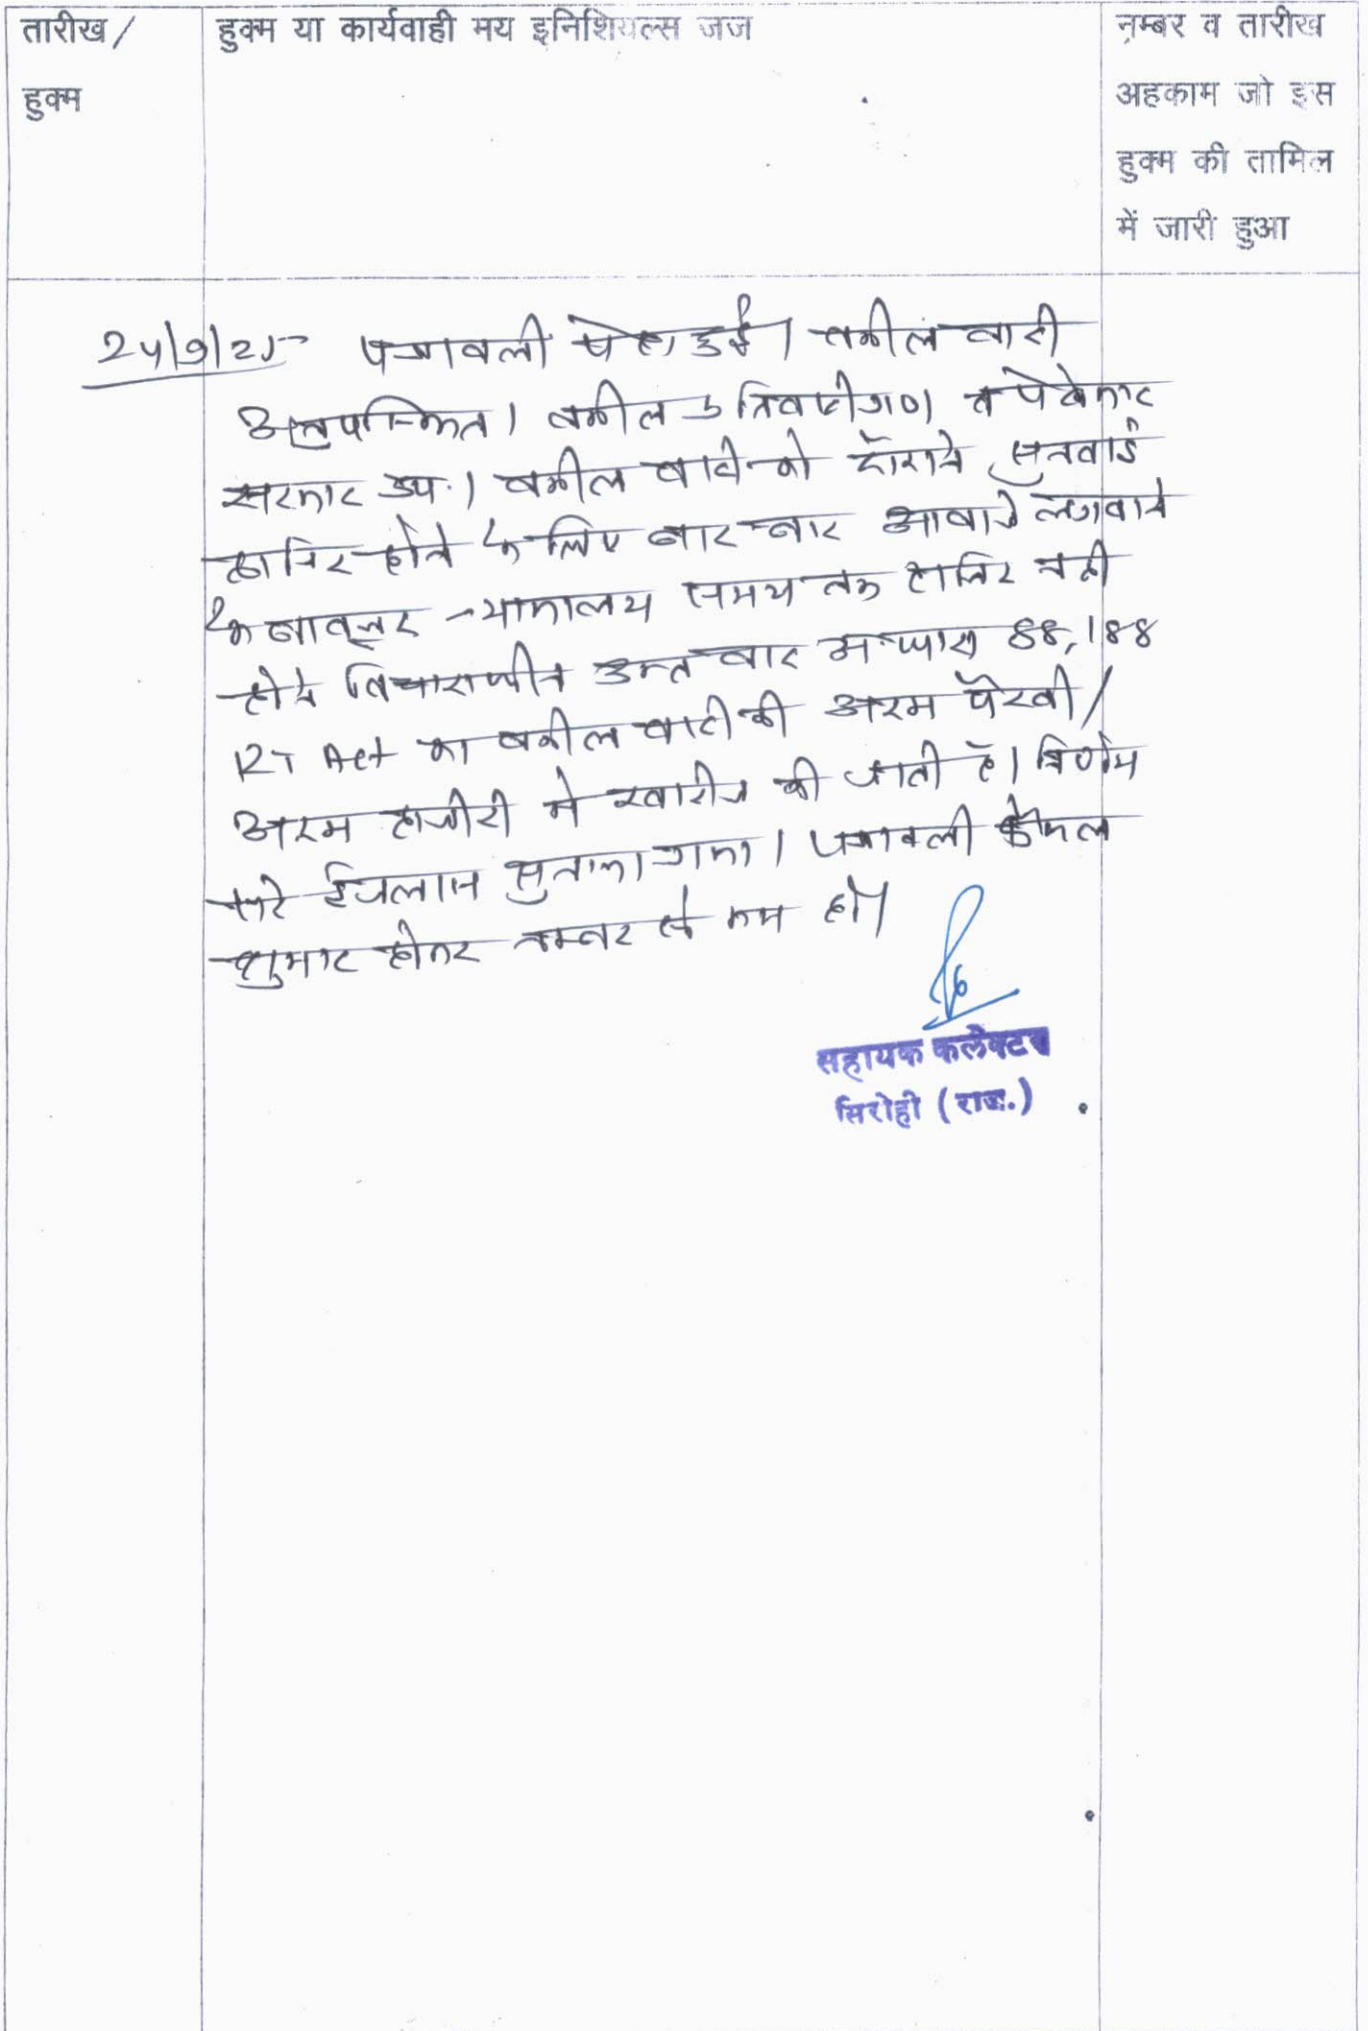 तारीख /
हुक्म
हुक्म या कार्यवाही मय इनिशियल्स जज
नम्बर व तारीख
अहकाम जो इस
हुक्म की तामिल
में जारी हुआ
पत्रावली पेश हुई। वकील वादी
अनुपस्थित। वकील प्रतिवादीगण व पेरोकार
सरकार उप.। वकील वादी को दौराने सुनवाई
हाजिर होने के लिए बार-बार आवाजे लगवाने
के बावजूद न्यायालय समय तक हाजिर नही
होने विचाराधीन उक्त वाद अ.धारा 88,188
RT Act का वकील वादी की अदम पैरवी/
अदम हाजीरी मे खारीज की जाती है। निर्णय
सरे ईजलास सुनाया गया। पत्रावली फैसल
शुमार होकर नम्बर से कम हो।
सहायक कलेक्टर
सिरोही (राज.)